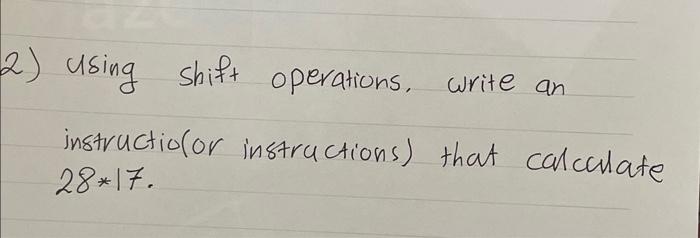 2) Using shift operations, write an
instructio(or instructions) that calculate
28*17.